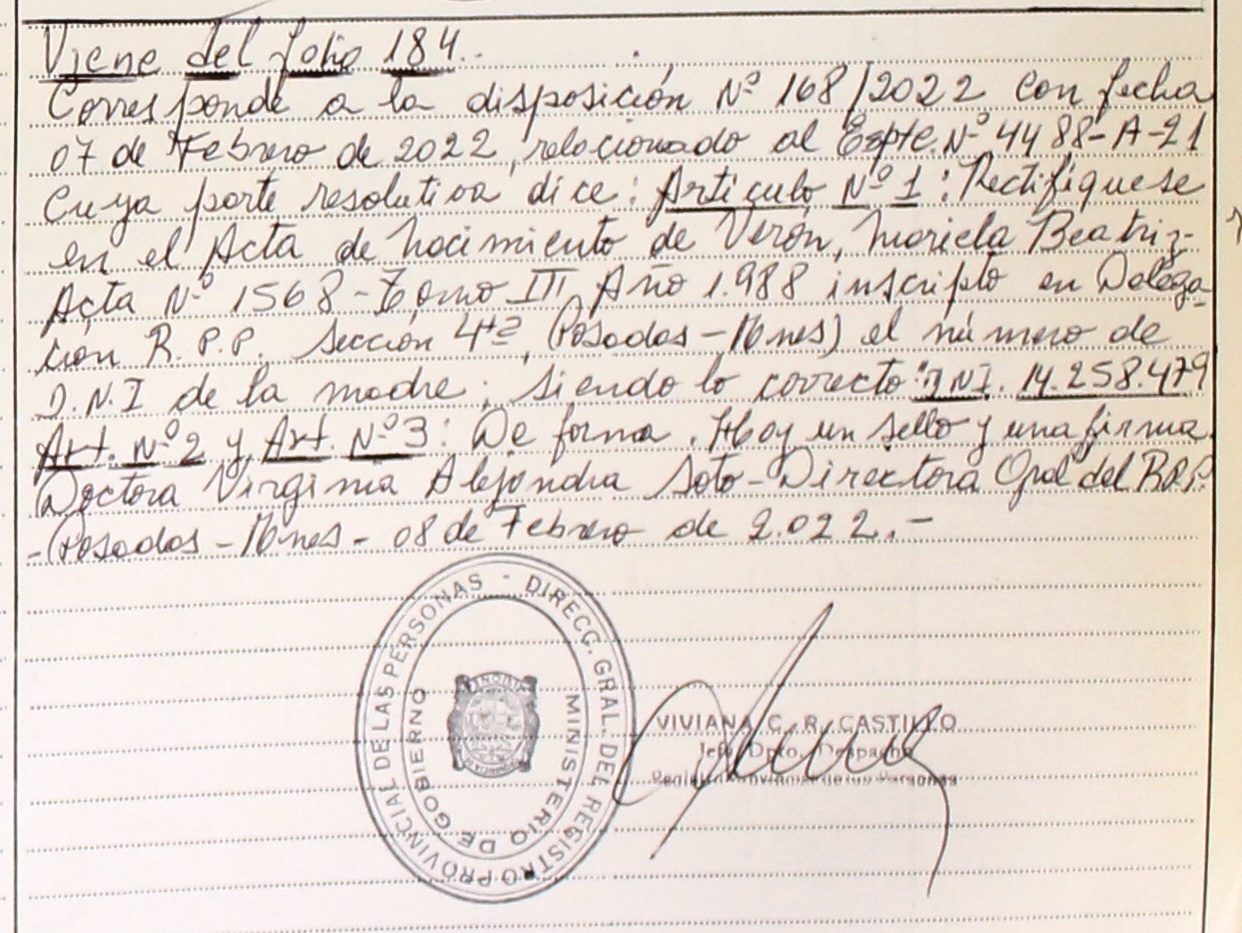 Viene del folio 184.-
Corresponde a la disposición Nº 168/2022 con fecha
07 de Febrero de 2022, relacionado al Expte. Nº 4488-A-21
Cuya parte resolutiva dice: Artículo Nº 1: Rectifíquese
en el Acta de Nacimiento de Verón, Mariela Beatriz-
Acta Nº 1568-Tomo III Año 1.988 inscripto en Delega-
ción R.P.P. Sección 4ta (Posadas-Mnes) el número de
D.N.I de la madre; siendo lo correcto: D.N.I. 14.258.479
Art. Nº 2 y Art. Nº 3: De forma. Hay un sello y una firma.
Doctora Virginia Alejandra Soto-Directora Gral del R.P.P.
-Posadas-Mnes- 08 de Febrero de 2.022.-
DIRECC. GRAL. DEL REGISTRO PROVINCIAL DE LAS PERSONAS -
MINISTERIO DE GOBIERNO
VIVIANA C. R. CASTILLO
Jefe Dpto. Despacho
Registro Provincial de las Personas